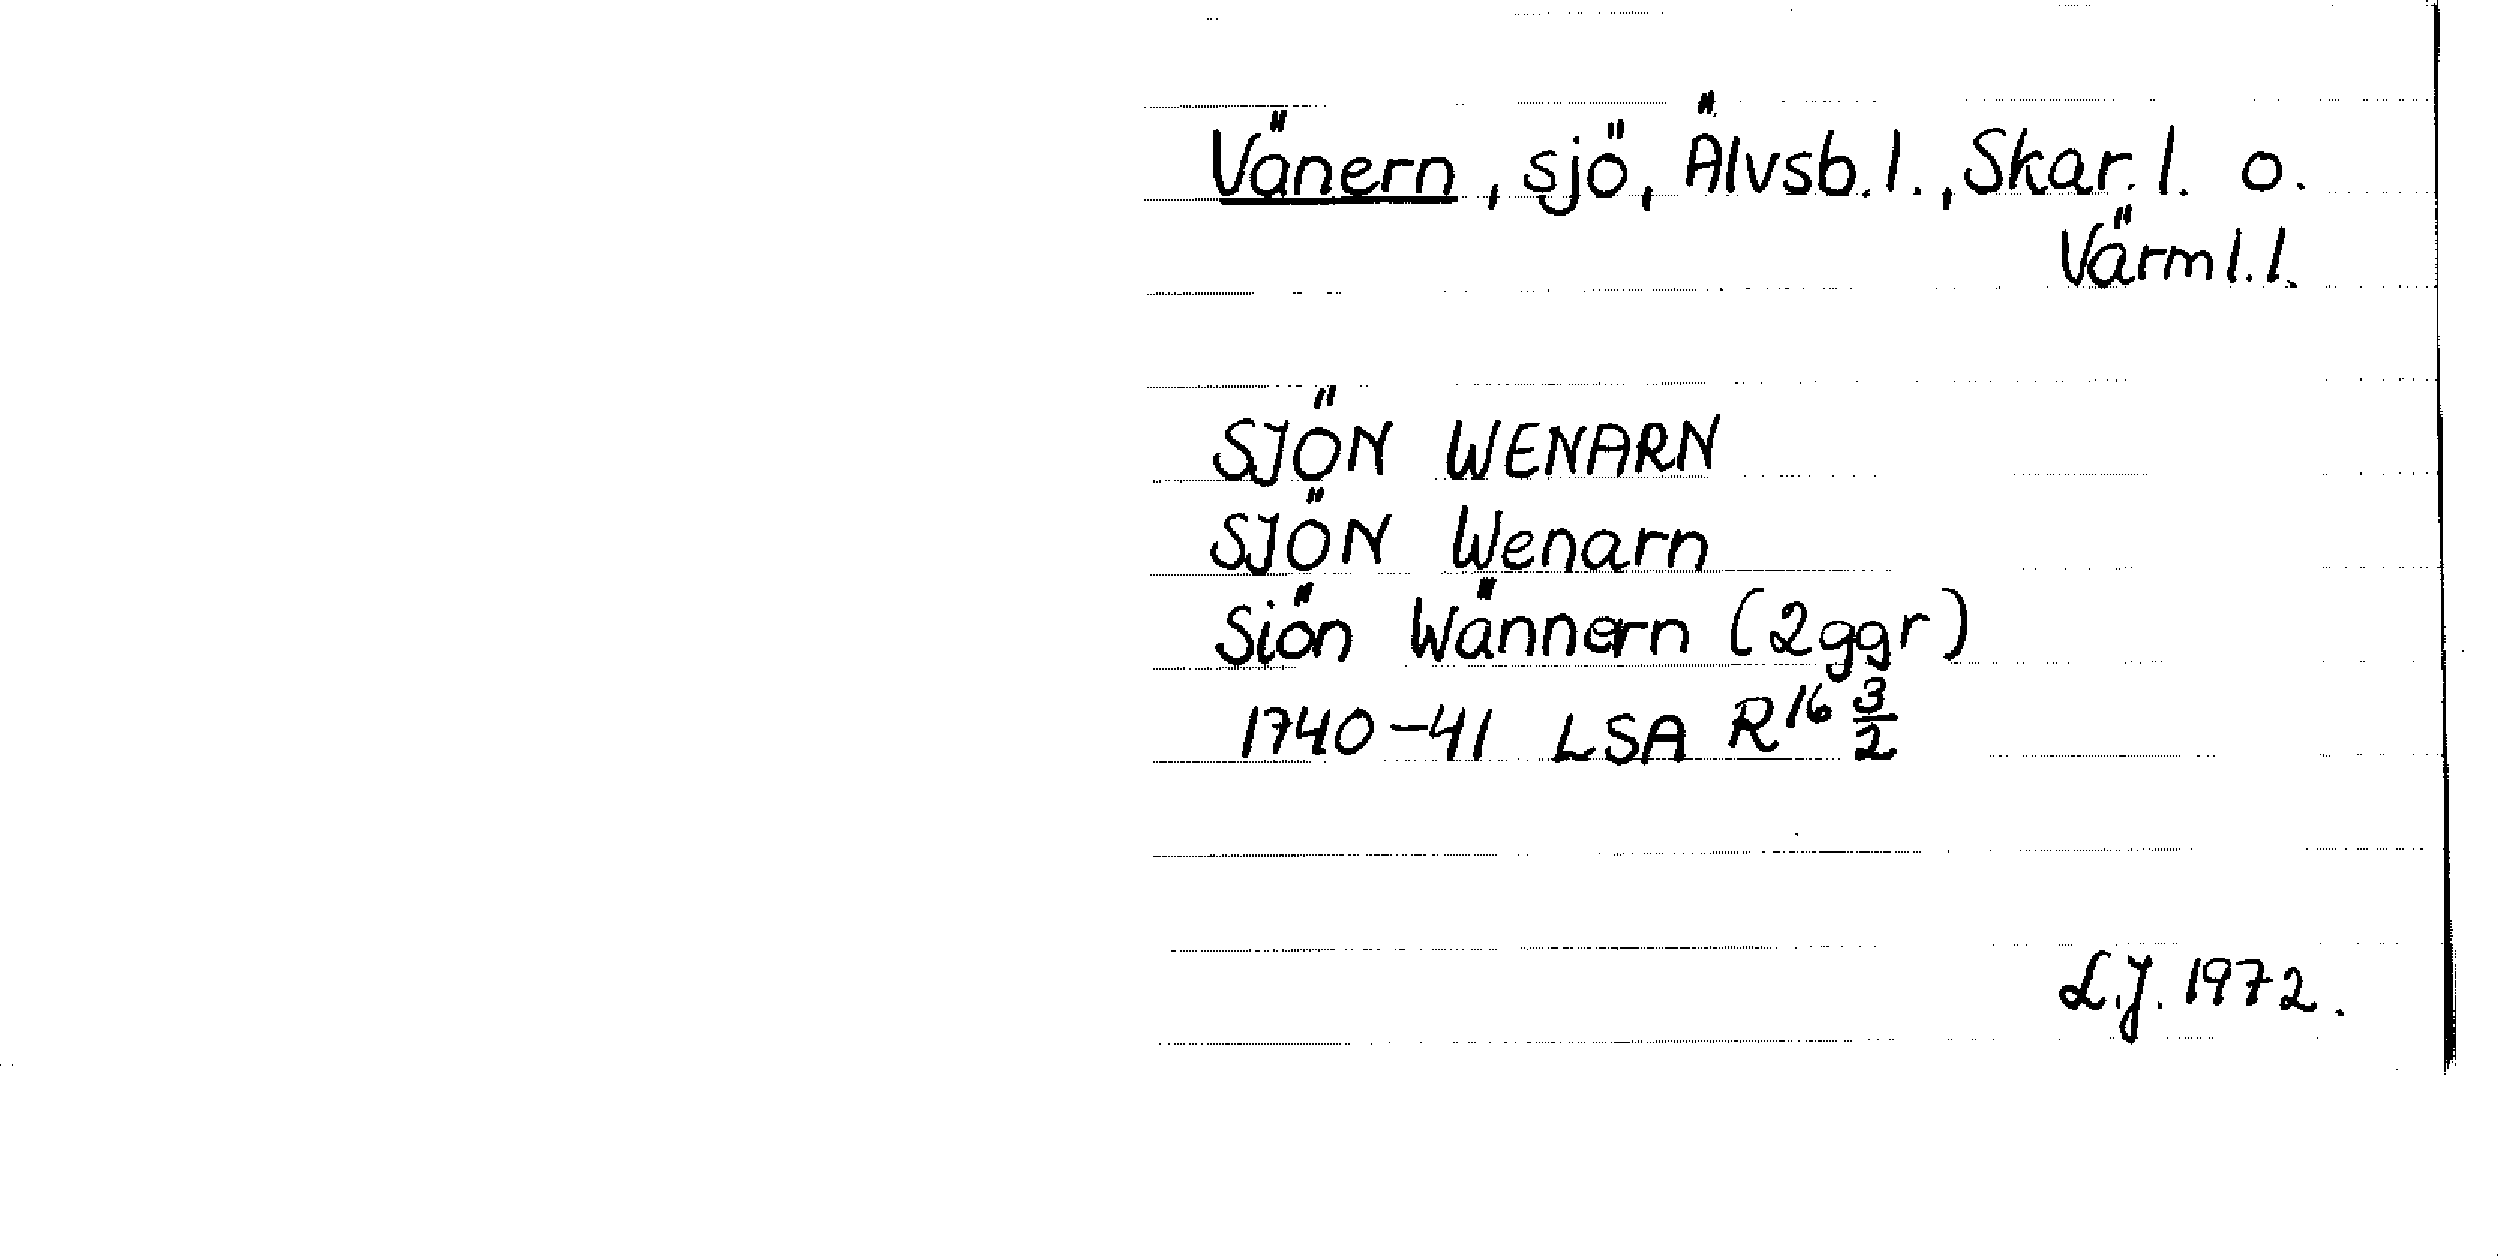 Vänern, sjö, Älvsb.l., Skar.l. o.
Värml.l.
SJÖN WENARN
SJÖN Wenarn
Siön Wännern (2ggr)
1740-41 LSA R¹⁶ 3/2
L.J. 1972.